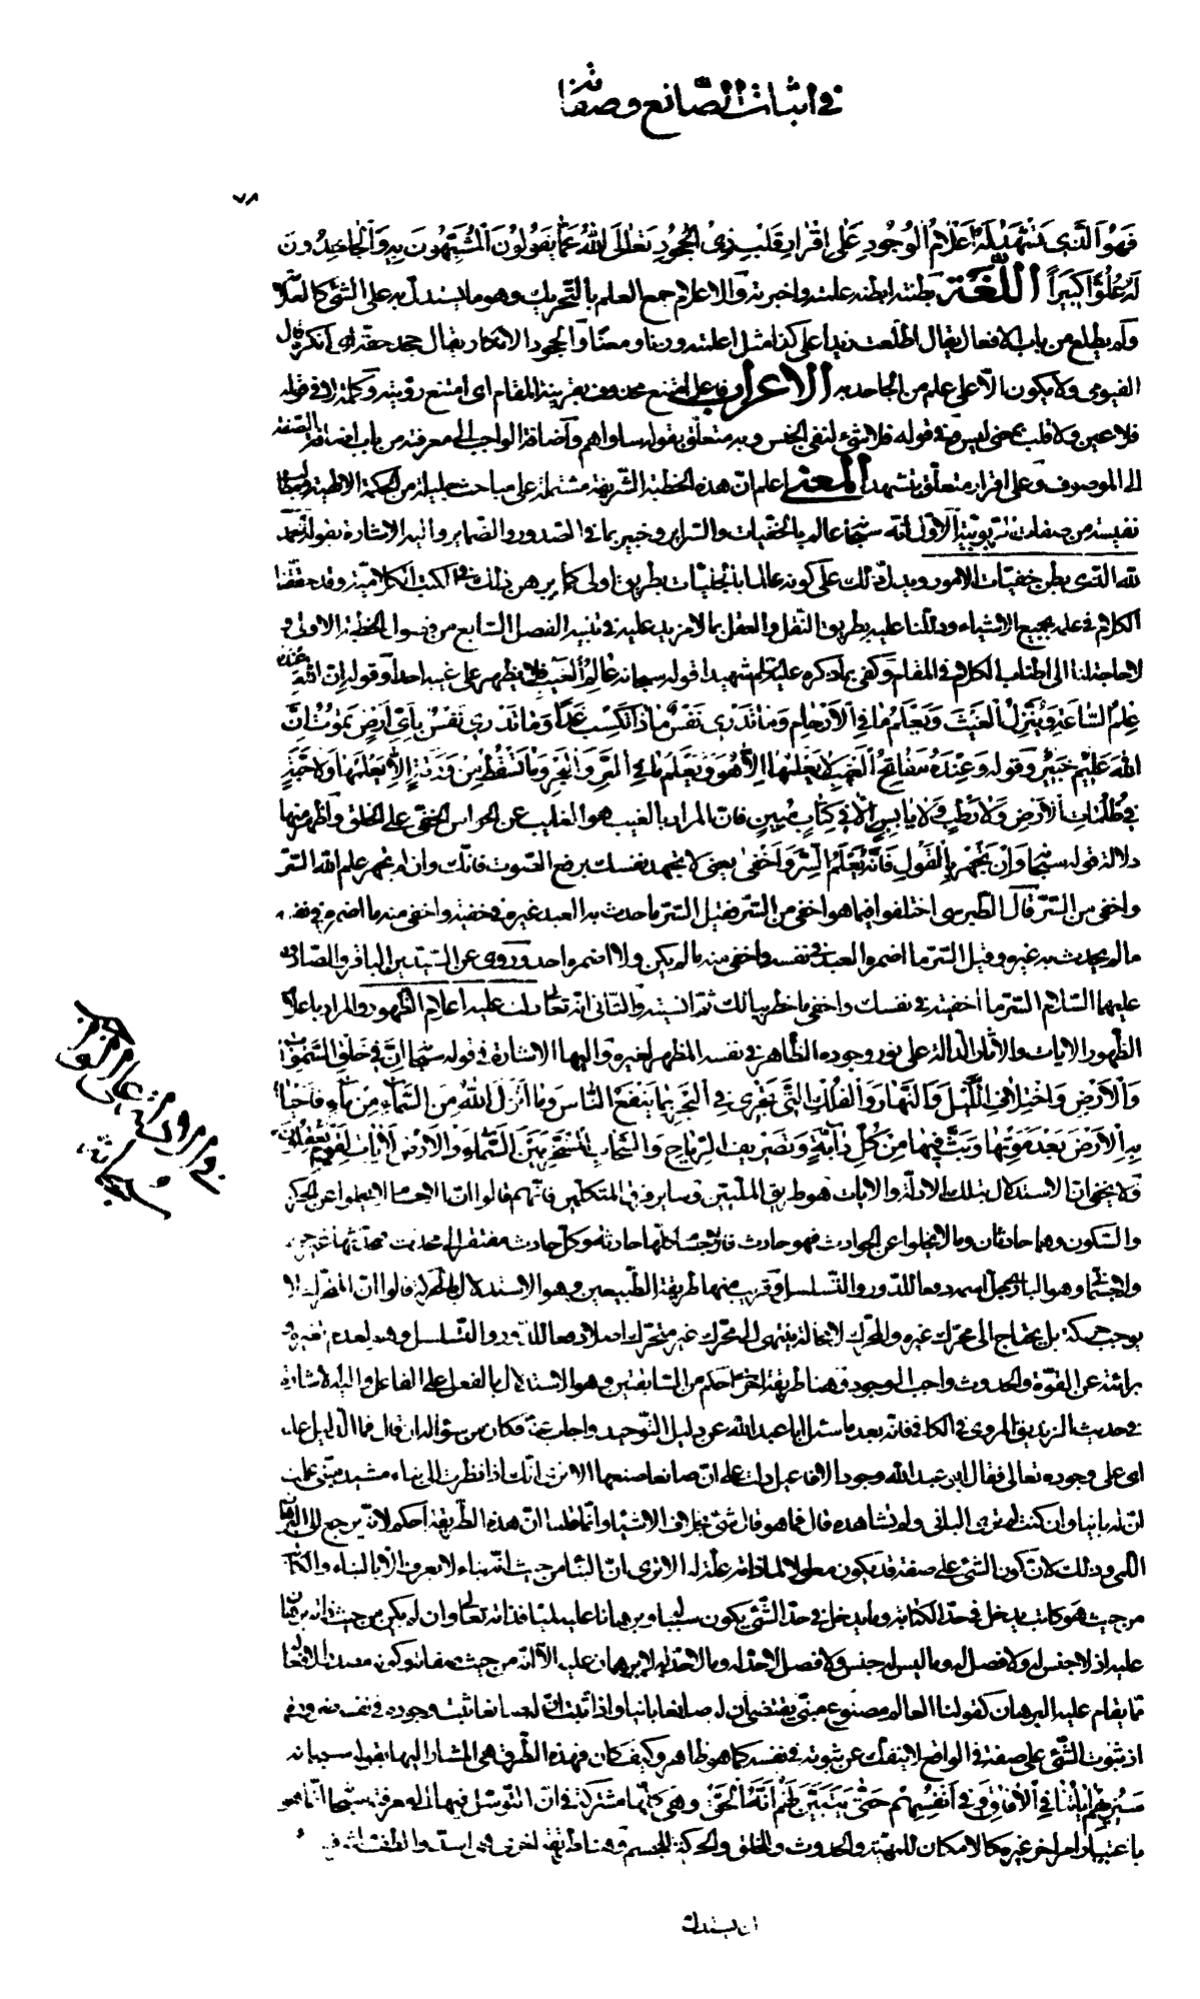 في اثبات الصّانع وصفاته
فَهُوَ الَّذِي تَشْهَدُ لَهُ أَعْلَامُ الْوُجُودِ عَلَى إِقْرَارِ قَلْبِ ذِي الْجُحُودِ تَعَالَى اللهُ عَمَّا يَقُولُونَ الْمُشَبِّهُونَ بِهِ وَالْجَاحِدُونَ
لَهُ عُلُوًّا كَبِيراً اللّغة بطنته ابطنه علمته واخبرته والاعلام جمع العلم بالتحريك وهو ما يستدل به على الشئ كالعلامة
ولم يطلع من باب الافعال يقال اطلعت زيدا على كذا مثل اعلمته وزنا ومعنا والجحود الانكار يقال جحد حقه اى أنكره قال
الفيومى ولا يكون الّا على علم من الجاحد به الاعراب وفاعل امتنع محذوف بقرينة المقام اى امتنع رؤيته وكلمة لا فى قوله
فلا عين ولا قلب بمعنى ليس وفى قوله فلا شىء لنفى الجنس وبه متعلق بقوله ساواهم واضافة الواجب الى معرفته من باب اضافة الصفة
الى الموصوف وعلى اقرار متعلّق بتشهد المعنى اعلم انّ هذه الخطبة الشّريفة مشتملة على مباحث جليلة من الحكمة الالهية ومطالب
نفيسة من صفات الربوبيّة الاوّل أنّه سبحانه عالم بالخفيات والسّراير وخبير بما فى الصّدور والضّماير واليه الاشارة بقوله الحمد
لله الّذى بطن خفيّات الامور ويدلّ ذلك على كونه عالما بالجليّات بطريق اولى كما برهن ذلك فى الكتب الكلاميّة وقد حقّقنا
الكلام فى علمه بجميع الاشياء ودلّلنا عليه بطريق النّقل والعقل بما لا مزيد عليه فى تنبيه الفصل السّابع من فصول الخطبة الاولى و
لا حاجة لنا الى اطناب الكلام فى المقام وكفى بما ذكره عليه السّلم شهيدا قوله سبحانه عَالِمُ الْغَيْبِ فَلا يظهر على غيبه احدا وقوله إنّ اللّه عنده
عِلْمُ السَّاعَةِ وَيُنَزِّلُ الْغَيْثَ وَيَعْلَمُ مَا فِي الْأَرْحَامِ وَمَا تَدْرِي نَفْسٌ مَاذَا تَكْسِبُ غَدًا وَمَا تَدْرِي نَفْسٌ بِأَيِّ أَرْضٍ تَمُوتُ إِنَّ
اللَّهَ عَلِيمٌ خَبِيرٌ وقوله وَعِنْدَهُ مَفَاتِحُ الْغَيْبِ لَا يَعْلَمُهَا إِلَّا هُوَ وَيَعْلَمُ مَا فِي الْبَرِّ وَالْبَحْرِ وَمَا تَسْقُطُ مِنْ وَرَقَةٍ إِلَّا يَعْلَمُهَا وَلَا حَبَّةٍ
فِي ظُلُمَاتِ الْأَرْضِ وَلَا رَطْبٍ وَلَا يَابِسٍ إِلَّا فِي كِتَابٍ مُبِينٍ فان المراد بالغيب هو الغايب عن الحواس الخفىّ على الخلق واظهر منها
دلالة قوله سبحانه وَإِنْ تَجْهَرْ بِالْقَوْلِ فَإِنَّهُ يَعْلَمُ السِّرَّ وَأَخْفَى يعنى لا تجهد نفسك برفع الصّوت فانّك وان لم تجهر علم الله السّرّ
واخفى من السّرّ قال الطبرسى اختلفوا فيما هو اخفى من السّرّ فقيل السّرّ ما حدث به العبد غيره فى خفية واخفى منه ما اضمره فى نفسه
ما لم يحدث به غيره وقيل السّرّ ما اضمره العبد فى نفسه واخفى منه ما لم يكن ولا اضمره احد وروى عن السّيّدين الباقر والصّادق
عليهما السّلام السّرّ ما أخفيته فى نفسك واخفى ما خطر ببالك ثمّ انسيته والثّانى انّه تعالى دلّت عليه أعلام الظّهور والمراد باعلام
الظّهور الايات والآثار الدالة على نور وجوده الظّاهر فى نفسه المظهر لغيره واليها الاشارة فى قوله سبحانه إنَّ فِي خَلْقِ السَّمٰوَاتِ
وَالْأَرْضِ وَاخْتِلَافِ اللَّيْلِ وَالنَّهَارِ وَالْفُلْكِ الَّتِي تَجْرِي فِي الْبَحْرِ بِمَا يَنْفَعُ النَّاسَ وَمَا أَنْزَلَ اللَّهُ مِنَ السَّمَاءِ مِنْ مَاءٍ فَأَحْيَا
بِهِ الْأَرْضَ بَعْدَ مَوْتِهَا وَبَثَّ فِيهَا مِنْ كُلِّ دَابَّةٍ وَتَصْرِيفِ الرِّيَاحِ وَالسَّحَابِ الْمُسَخَّرِ بَيْنَ السَّمَاءِ وَالْأَرْضِ لَآيَاتٍ لِقَوْمٍ يَعْقِلُونَ
ولا يخفى انّ الاستدلال بتلك الادلة والايات هو طريق الملّيين وساير فرق المتكلمين فانهم قالوا انّ الاجسام لا يخلوا عن الحركة
والسّكون وهما حادثان وما لا يخلوا عن الحوادث فهو حادث فالاجسام كلّها حادثة وكلّ حادث مفتقر الى محدث
ولا جسمانى وهو البارى جلّ اسمه دفعا للدّور والتّسلسل وقريب منها طريقة الطّبيعيين وهو الاستدلال بالحركة قالوا انّ المتحرّك لا
يوجب حركة بل يحتاج الى محرّك غيره والمحرّك لا محالة ينتهى الى محرّك غير متحرّك اصلا دفعا للدّور والتّسلسل وهو لعدم تغيره و
برائته عن القوّة والحدوث واجب الوجود وهنا طريقة اخرى احكم من السّابقتين وهو الاستدلال بالفعل على الفاعل واليه الاشارة
فى حديث الزنديق المروى فى الكافى فانّه بعد ما سئل ابا عبد الله عن دليل التّوحيد واجاب عنه فكان من سؤاله ان قال فما الدّليل عليه
اى على وجوده تعالى فقال ابى عبد الله وجود الافاعيل دلت على انّ صانعا صنعها الا ترى انّك اذا نظرت الى بناء مشيد مبنى علمت
انّ له بانيا وان كنت لم تر البانى ولم تشاهده قال فما هو قال شئ بخلاف الاشياء وانّما قلنا انّ هذه الطّريقة احكم لانّه يرجع الى البرهان
اللمى وذلك لانّ كون الشئ على صفة قد يكون معلولا لما ذاته علّة له الا ترى انّ البنّاء من حيث انّه بنّاء لا يعرف الّا بالبناء والكاتب
من حيث هو كاتب يدخل فى حدّه الكتابة وما يدخل فى حدّ الشّئ يكون سببا وبرهانا عليه لميّا فذاته تعالى وان لم يكن من حيث ذاته برهان
عليه اذ لا جنس له ولا فصل له وما ليس له جنس ولا فصل لا حدّ له وما لا حدّ له لا برهان عليه الّا انّه من حيث صفاته وكونه مصدرا لافعاله
ممّا يقام عليه البرهان كقولنا العالم مصنوع مبنى يقتضى ان له صانعا بانيا واذا ثبت انّ له صانعا ثبت وجوده فى نفسه ضرورة
اذ ثبوت الشّئ على صفة فى الواقع لا ينفك عن ثبوته فى نفسه كما هو ظاهر وكيف كان فهذه الطّرق هى المشار اليها بقوله سبحانه
سَنُرِيهِمْ آيَاتِنَا فِي الْآفَاقِ وَفِي أَنْفُسِهِمْ حَتَّى يَتَبَيَّنَ لَهُمْ أَنَّهُ الْحَقُّ وهى كلّها مشتركة فى انّ التوسّل فيها الى معرفته سبحانه انّما هو
باعتبار أمر اخر غيره كالامكان للمهيّة والحدوث والخلق والحركة للجسم وهنا طريقة اخرى
ان يستدل
فى الادلة على الواجب
سبحانه